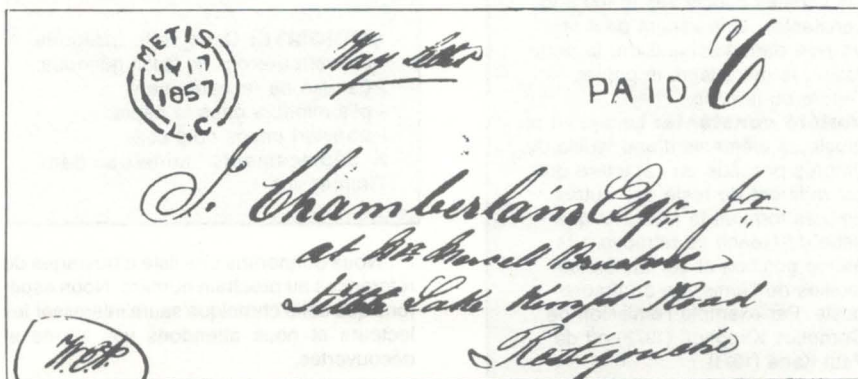 METIS
JY 17
1857
L.C.
Way Letter
PAID 6
J. Chamberlain Esqr. Jr.
at Mr Marcel Brochu
Little Lake Kempt Road
Restigouche